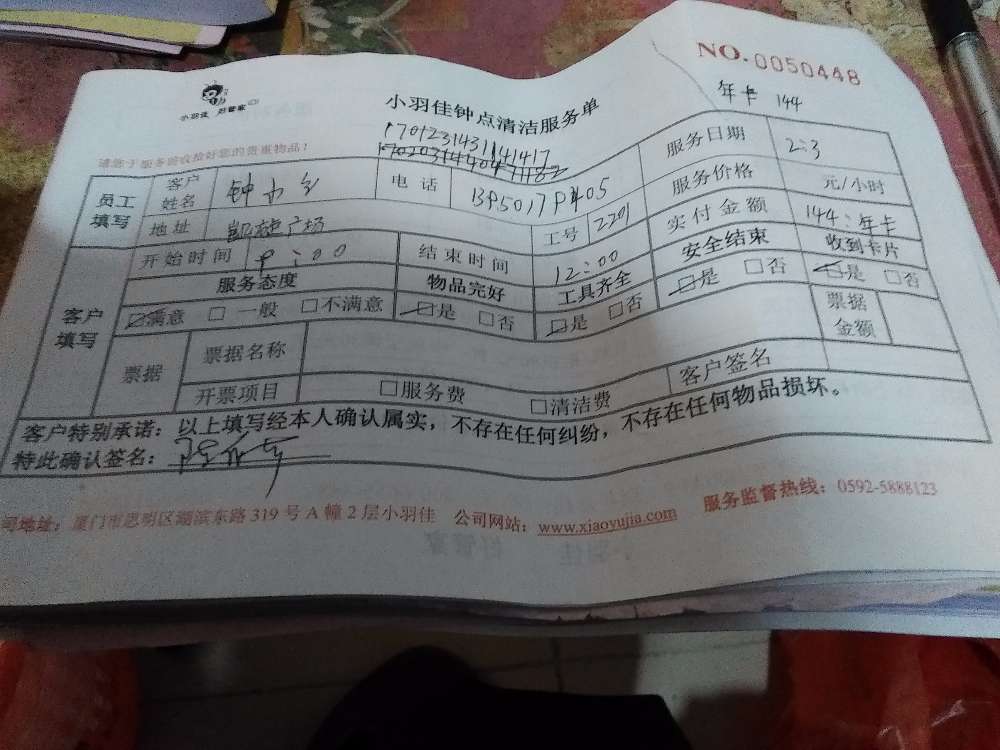 NO.0050448
小羽佳 好管家
小羽佳钟点清洁服务单
年卡 144
请您于服务前收拾好您的贵重物品!
员工填写 客户姓名 电话 服务日期 2:3
地址 凯旋广场 工号 2201 服务价格 元/小时
实付金额 144:年卡
客户填写 开始时间 9:00 结束时间 12:00 安全结束 收到卡片
服务态度 物品完好 工具齐全 ☑是 □否 ☑是 □否
☑满意 □一般 □不满意 ☑是 □否 ☑是 □否
票据 票据名称 票据金额
开票项目 □服务费 □清洁费 客户签名
客户特别承诺:以上填写经本人确认属实,不存在任何纠纷,不存在任何物品损坏。
特此确认签名:
司地址:厦门市思明区湖滨东路319号A幢2层小羽佳 公司网站:www.xiaoyujia.com 服务监督热线:0592-5888123